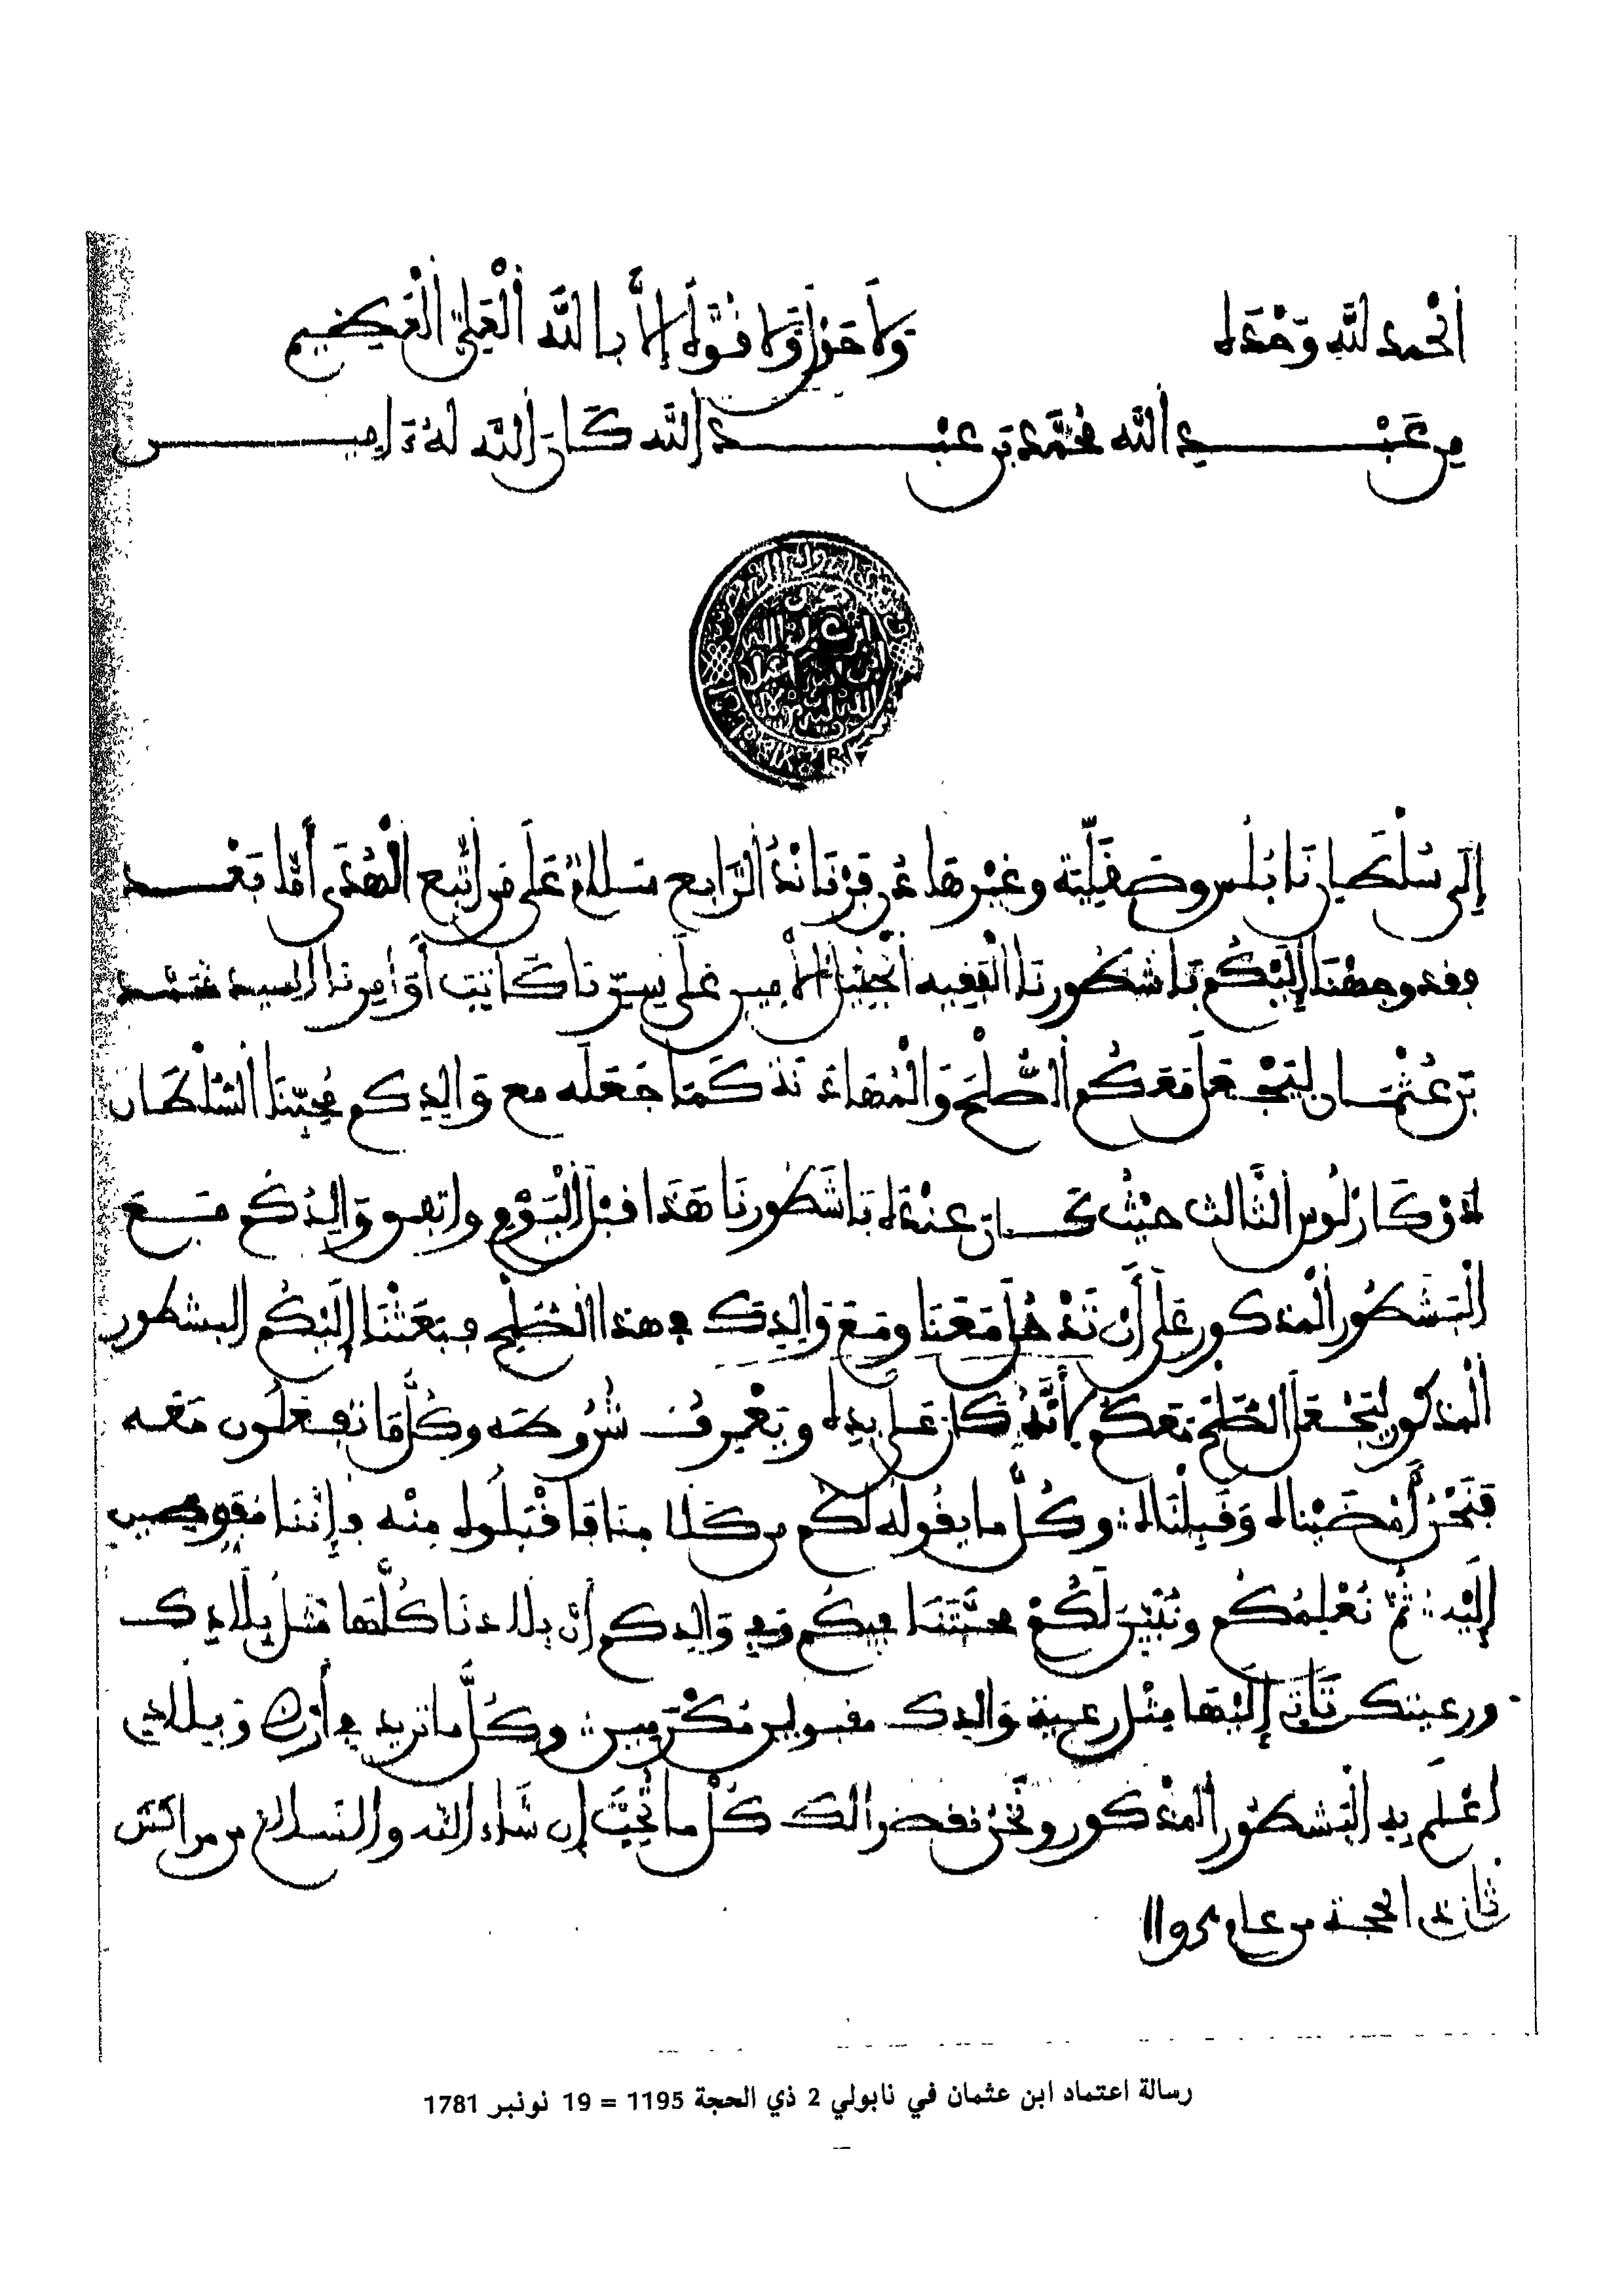 الحمد لله وحده ولا حول ولا قوة إلا بالله العلي العظيم
من عبد الله محمد بن عبد الله كان الله له ءامين
محمد
ابن عبد الله
إلى سلطان نابلس وصقلية وغيرها غن فرناند الرابع سلام على من اتبع الهدى أما بعد
فقد وجهنا إليكم باشطورنا الفقيه الأمير على يسرنا كاتب أوامرنا السيد محمد
بن عثمان ليجعل معكم الصلح والمهادنة كما جعله مع والدكم محبنا السلطان
ضون كارلوس الثالث حيث كان عنده باشطورنا هذا قبل اليوم واتفق والدكم مع
البشطور المذكور على أن تدخل معنا ومع والدك في هذا الصلح وبعثنا إليكم البشطور
المذكور ليجعل الصلح معكم لأنه كان على يده ويعرف شروطه وكل ما تفعلون معه
فنحن أمضيناه وقبلناه وكل ما يقوله لكم من كلامنا فاقبلوه منه فإننا مفوضين
إليه ثم نعلمكم ونبين لكم محبتنا فيكم وفي والدكم أن بلادنا كلها مثل بلادك
ورعيتك تأتي إليها مثل رعية والدك مقبولين مكرمين وكل ما تريد في أرض وبلادي
اعلم به البشطور المذكور ونحن نقضوا لك كل ما تحب إن شاء الله والسلام من مراكش
ثاني الحجة من عام
رسالة اعتماد ابن عثمان في نابولي 2 ذي الحجة 1195 = 19 نونبر 1781